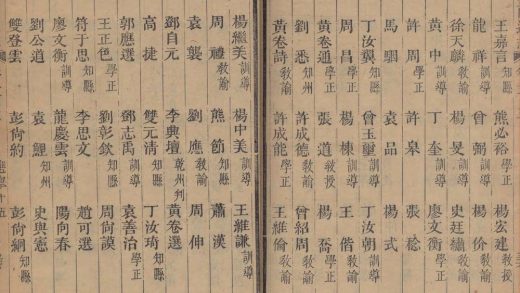 王嘉言訓導 熊必裕學正 楊宏建教諭
龍祥訓導 曾 楊份教諭
徐天麟教諭 楊 史廷繡教諭
黃中訓導 丁奎訓導 廖文衡學正
許周學正 許臯 張稔
馬駟 袁品 楊式
丁汝翼 曾玉璽訓導 丁汝朝訓導
周昌學正 楊棟訓導 王偕教諭
黃卷通教諭 張道教授 楊喬學正
劉悉知州 許成德教諭 曾紹周教諭
黃卷詩教諭 許成能學正 王維倫教諭
楊繼美訓導 楊中美訓導 王維謙訓導
周禮教諭 熊節訓導 蕭漢
袁襲 劉應教諭 周伸
鄧自元 李興壇乾州判 黃卷選
高捷 雙元清 丁汝琦知縣
郭應選 鄧志禹訓導 袁善治學正
王正色學正 劉彰欽知縣 周尚謨
符于思知縣 李思文 趙可選
廖文衡訓導 龍慶雲訓導 陽向春
劉公道 袁鯉知州 史與憲
雙登雲 彭尚約 彭尚絅知縣